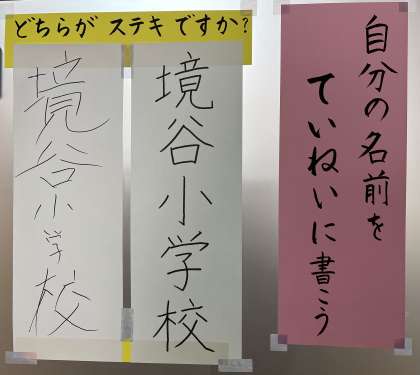 どちらが ステキ ですか?
境谷小学校
境谷小学校
自分の名前を
ていねいに書こう